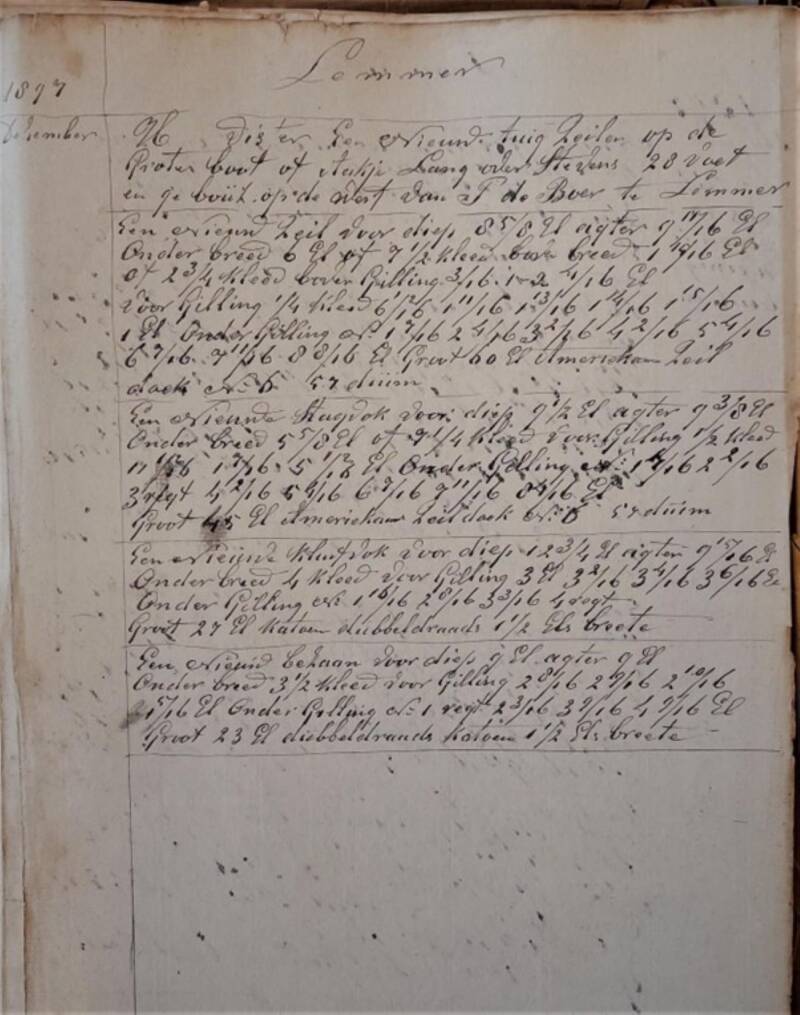 Lemmer
1897
December
26 Dis ter Een Nieuwe tuig Zeilen op de
Groten boot of Aakje Lang over Stevens 28 Voet
en ge bouwt op de Werf van P de Boer te Lemmer
Een Nieuw Zeil Voor diep 8 5/8 El agter 9 El
Onder breed 6 El of 7 1/2 kleed boven breed 1 El
of 2 3/4 kleed boven Gilling 3/16 4/16 El
Voor Gilling 1/4 kleed 1 11/16 1 13/16 1 14/16 1 15/16
1 El Onder Gilling No 1 2 4/16 3 2/16 4 2/16 5 4/16
6 7/16 7 11/16 8 8/16 El Groot 60 El Amerikaan Zeil
doek No 6 57 duim
Een Nieuwe Stagvok Voor diep 9 1/2 El agter 9 3/8 El
Onder breed 5 5/8 El of 7 1/4 kleed Voor Gilling 1/2 kleed
El Onder Gilling 2 2/16
3 regt 4 2/16 7 11/16 El
Groot 45 El Amerikaan Zeil doek No 6 57 duim
Een Nieuwe kluifvok Voor diep 12 3/4 El agter 9 15/16 El
Onder breed 4 kleed Voor Gilling 3 El 3 2/16 3 4/16 3 6/16 El
Onder Gilling No 1 2 8/16 3 3/16 4 regt
Groot 27 El katoen dubbeldraads 1 1/2 Els breete
Een Nieuw bezaan Voor diep 9 El agter 9 El
Onder breed 3 1/2 kleed Voor Gilling 2 8/16 2 9/16 2 10/16
El Onder Gilling No 1 regt 2 3/16 3 4 El
Groot 23 El dubbeldraads katoen 1 1/2 Els breete